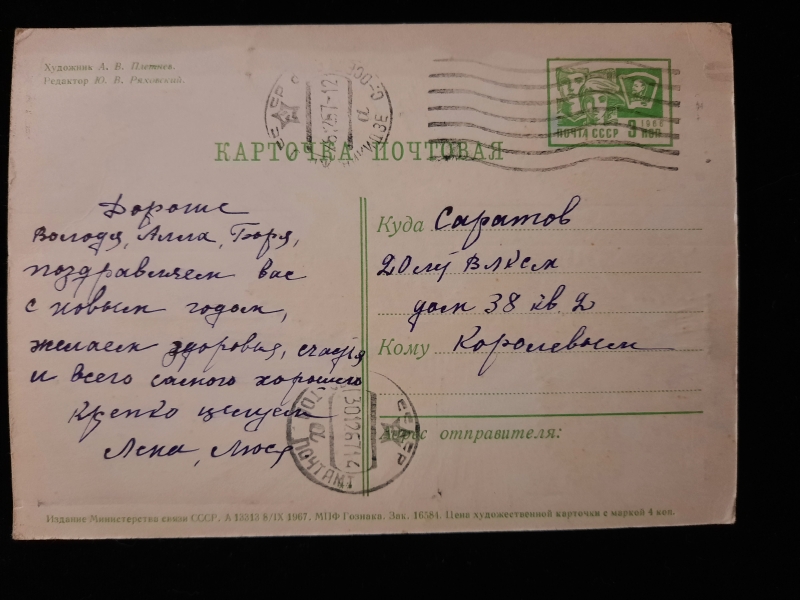 Художник А. В. Плетнев.
Редактор Ю. В. Ряховский.
КАРТОЧКА ПОЧТОВАЯ
ПОЧТА СССР
1966
3 коп
Дорогие
Володя, Алла, Боря,
поздравляем вас
с новым годом,
желаем здоровья, счастья
и всего самого хорошего
Крепко целуем
Лена, Люся
Куда Саратов
20 лет ВЛКСМ
дом 38 кв. 2
Кому Королевым
Адрес отправителя:
ПОЧТАМТ
30126714
Издание Министерства связи СССР. А 13313 8/IX 1967. МПФ Гознака. Зак. 16584. Цена художественной карточки с маркой 4 коп.